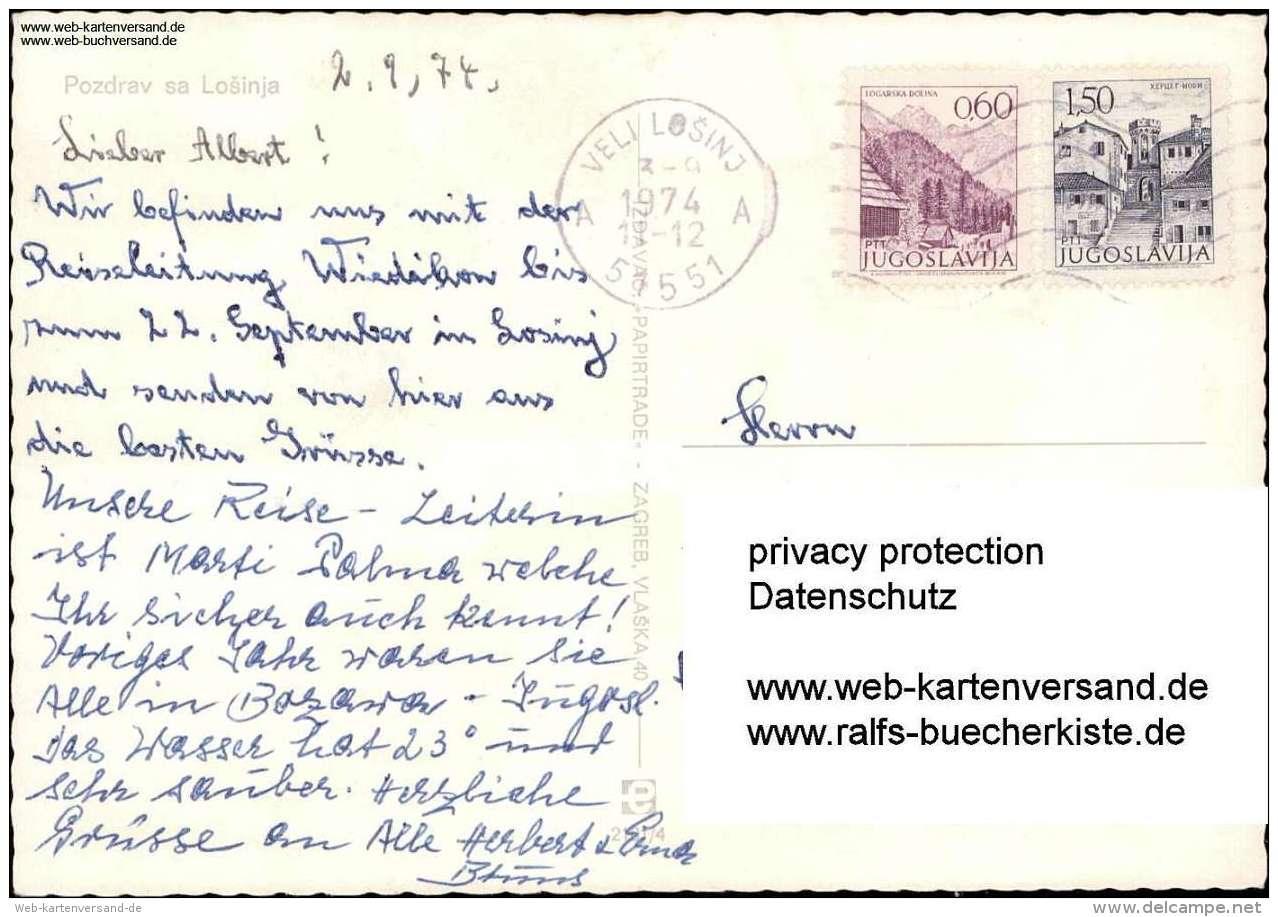 www.web-kartenversand.de
www.web-buchversand.de
Pozdrav sa Lošinja
2.9.74.
Lieber Albert!
Wir befinden uns mit der
Reiseleitung Wiedikon bis
zum 22. September in Losinj
und senden von hier aus
die besten Grüsse.
Unsere Reise-Leiterin
ist Marti Palma welche
Ihr sicher auch kennt!
Voriges Jahr waren sie
Alle in Bozawa - Jugosl.
das Wasser hat 23° und
sehr sauber. Herzliche
Grüsse an Alle Herbert & Erna
VELI LOŠINJ
3-9
1974
-12
A A
57551
IZDAVAČ: »PAPIRTRADE« - ZAGREB, VLAŠKA 40
LOGARSKA DOLINA
0,60
PTT
JUGOSLAVIJA
ХЕРЦЕГ-НОВИ
1,50
PTT
JUGOSLAVIJA
Herrn
privacy protection
Datenschutz
www.web-kartenversand.de
www.ralfs-buecherkiste.de
© Web-kartenversand-de
www.delcampe.net